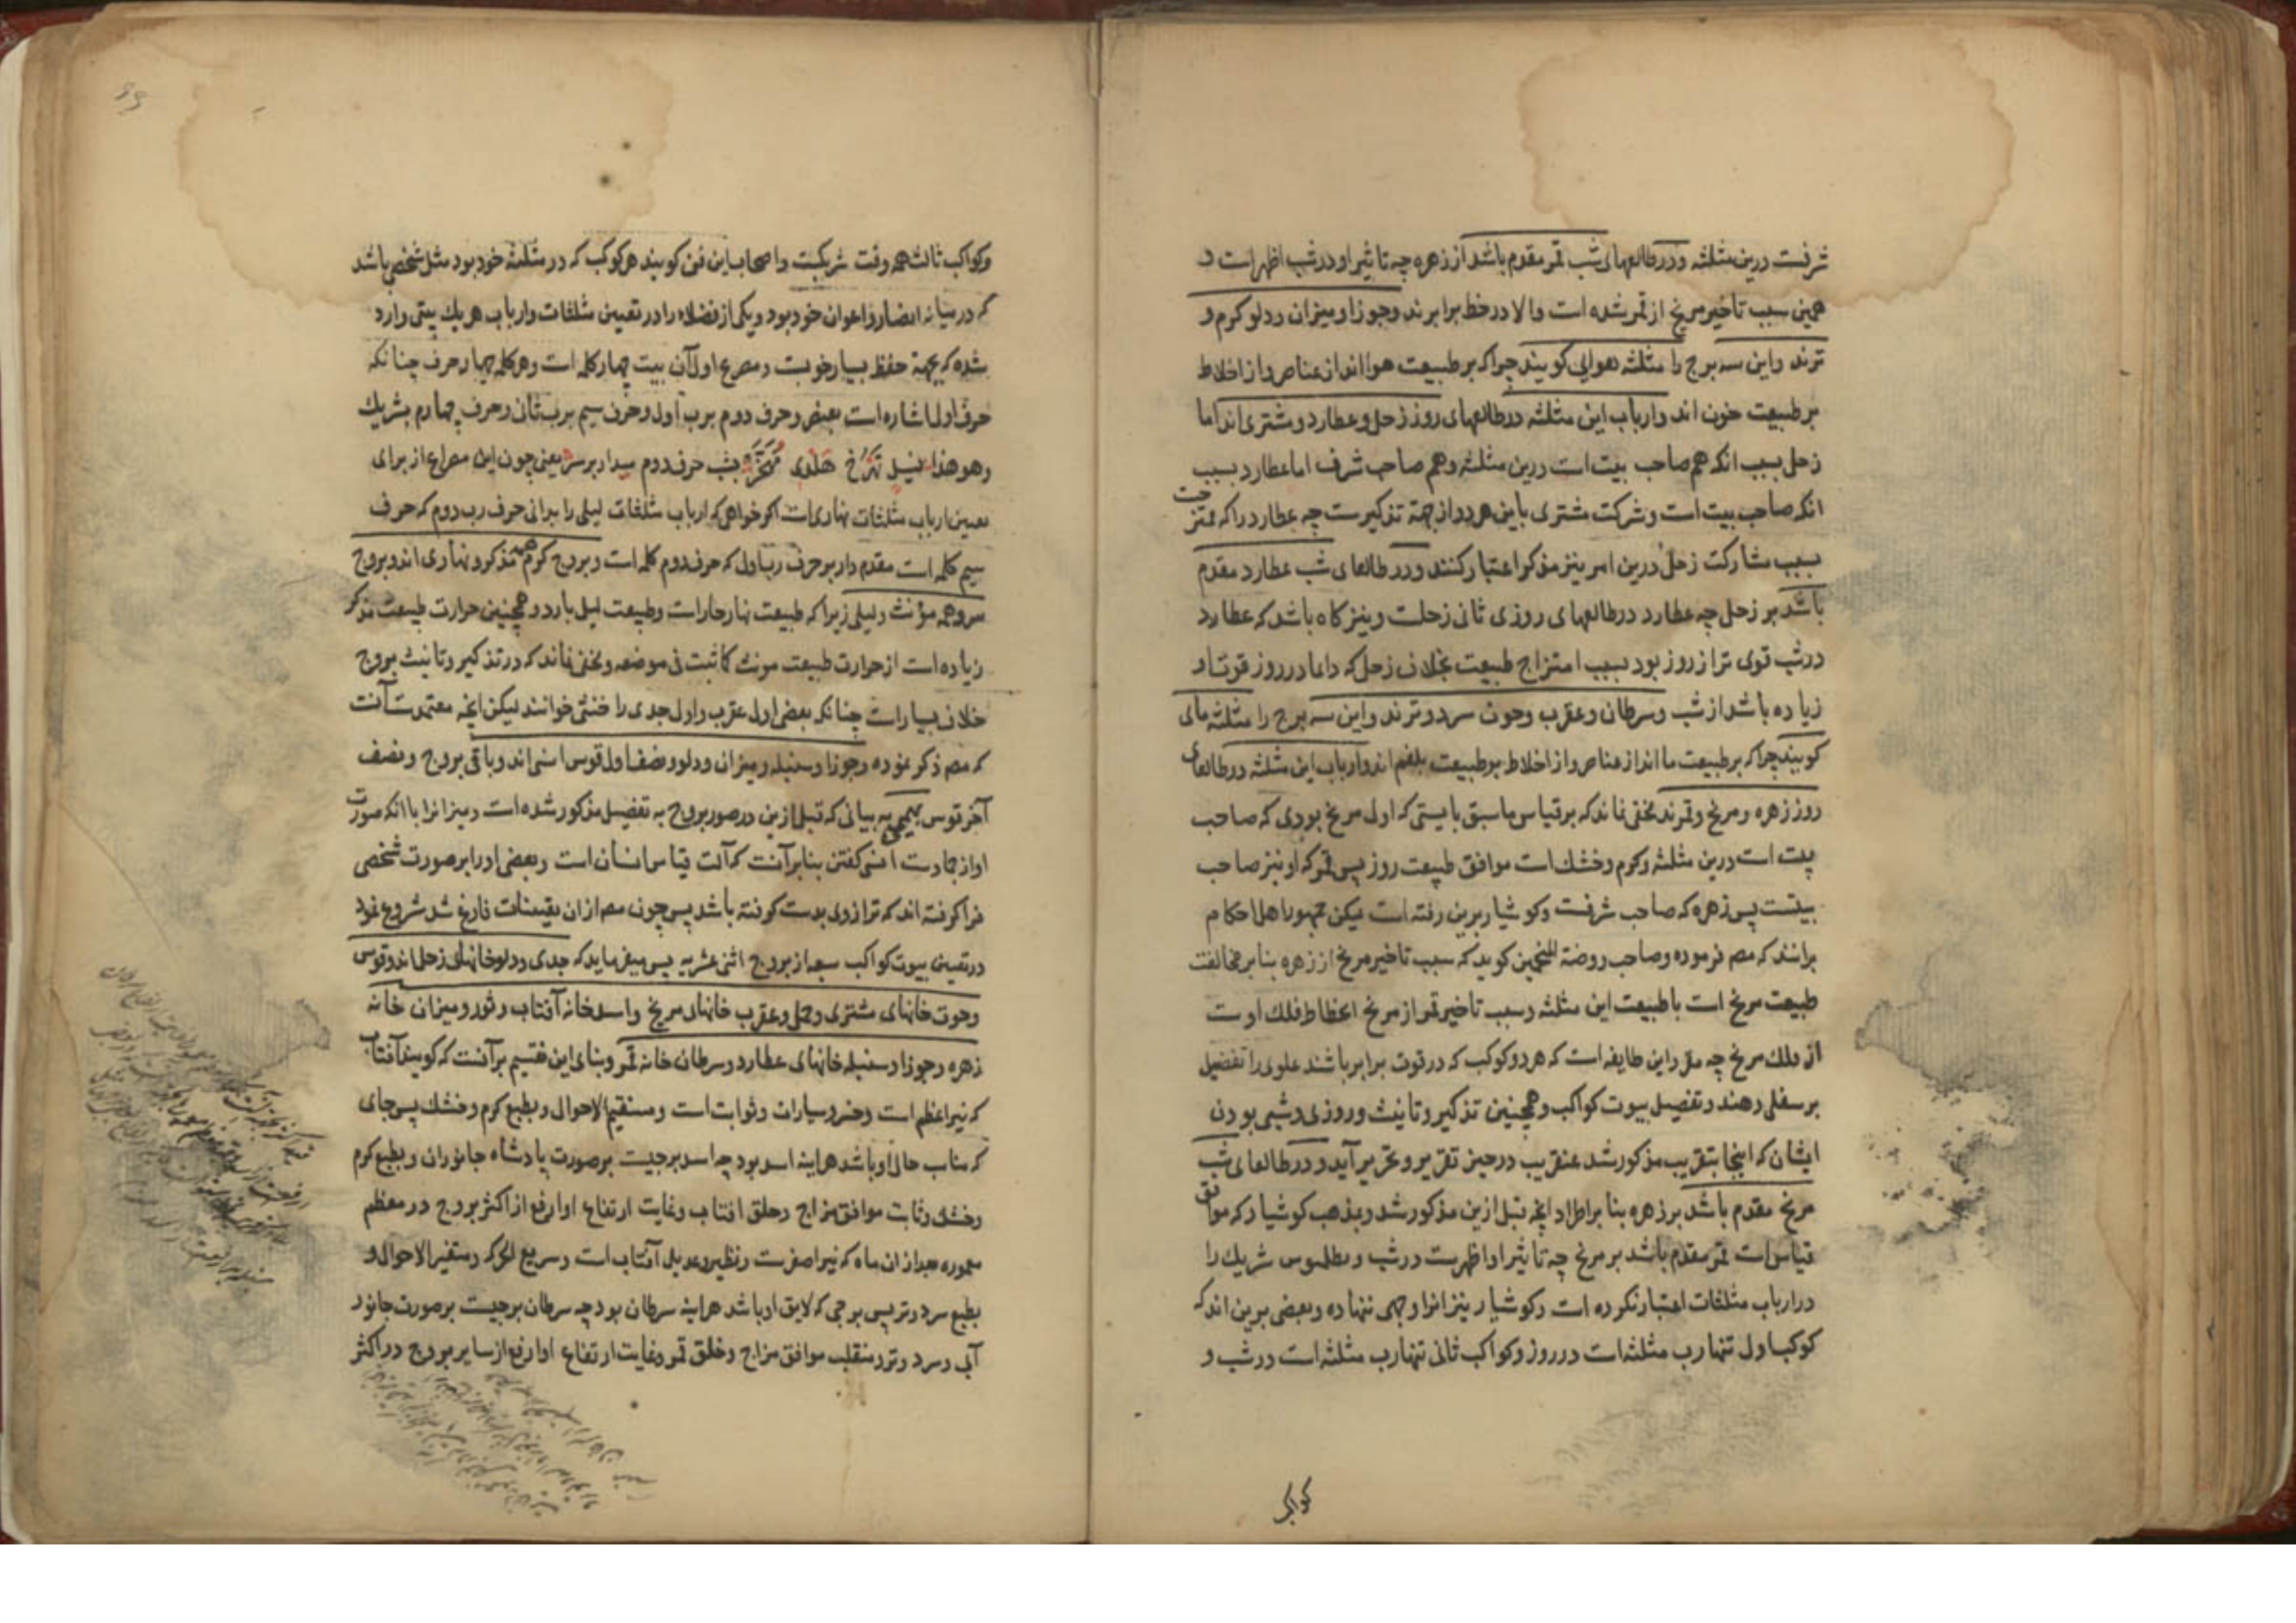 شرفست درین مثلثه و در طالعهای شب قمر مقدم باشد از زهره چه تاثیر او در شب اظهر است و
همین سبب تاخیر مریخ از قمر شده است والا در حظ برابرند و جوزا و میزان و دلو کرم و
ترند و این سه برج را مثلثه هوایی کویند چراکه بر طبیعت هوا اند از عناصر و از اخلاط
بر طبیعت خون اند و ارباب این مثلثه در طالعهای روز زحل و عطارد و مشتری اند اما
زحل بسبب انکه هم صاحب بیت است درین مثلثه و هم صاحب شرف اما عطارد بسبب
انکه صاحب بیت است و شرکت مشتری باین هر دو از جهة تذکیرست چه عطارد را که ممتزجست
بسبب مشارکت زحل درین امر نیز مذکر اعتبار کنند و در طالعهای شب عطارد مقدم
باشد بر زحل چه عطارد در طالعهای روزی ثانی زحلست و نیز کاه باشد که عطارد
در شب قوی تر از روز بود بسبب امتزاج طبیعت بخلاف زحل که دایما در روز قوت او
زیاده باشد از شب و سرطان و عقرب و حوت سرد و ترند و این سه برج را مثلثه مائی
کویند چراکه بر طبیعت ما اند از عناصر و از اخلاط بر طبیعت بلغم اند و ارباب این مثلثه در طالعهای
روز زهره و مریخ و قمرند مخفی نماند که بر قیاس ماسبق بایستی که اول مریخ بودی که صاحب
بیت است درین مثلثه و کرم و خشک است موافق طبیعت روز پس قمر که او نیز صاحب
بیتست پس زهره که صاحب شرفست و کوشیار برین رفته است لیکن جمهور اهل احکام
برانند که مصر فرموده و صاحب روضة المنجمین کوید که سبب تاخیر مریخ از زهره بنابر مخالفت
طبیعت مریخ است با طبیعت این مثلثه و سبب تاخیر قمر از مریخ انحطاط فلک اوست
از فلک مریخ چه مقرر این طایفه است که هر دو کوکب که در قوت برابر باشند علوی را تفضیل
بر سفلی دهند و تفصیل بیوت کواکب و همچنین تذکیر و تانیث و روزی و شبی بودن
ایشان که اینجا بتقریب مذکور شد عنقریب در حیز تقریر و تحریر آید و در طالعهای شب
مریخ مقدم باشد بر زهره بنا بر اطراد انچه قبل ازین مذکور شد و بمذهب کوشیار که موافق
قیاس است قمر مقدم باشد بر مریخ چه تاثیر او اظهرست در شب و بطلمیوس شریک را
در ارباب مثلثات اعتبار نکرده است و کوشیار نیز انرا وجهی ننهاده و بعضی برین اند که
کوکب اول تنها رب مثلثه است در روز و کواکب ثانی تنها رب مثلثه است در شب و
کواکب
وکواکب ثالث همه وقت شریکست و اصحاب این فن کویند هر کوکب که در مثلثه خود بود مثل شخصی باشد
که در میانه انصار و اعوان خود بود و یکی از فضلاء را در تعیین مثلثات و ارباب هریک بیتی وارد
شده که بجهة حفظ بسیار خوبست و مصرع اول آن بیت چهار کلمه است و هر کلمه چهار حرف چنانکه
حرف اول اشاره است بعنصر و حرف دوم برب اول و حرف سیم برب ثانی و حرف چهارم بشریک
وهو هذا بشب حرف دوم میدار بر سر یعنی چون این مصراع از برای
تعیین ارباب مثلثات نهاری است اکر خواهی که ارباب مثلثات لیلی را برانی حرف رب دوم که حرف
سیم کلمه است مقدم دار بر حرف رب اول که حرف دوم کلمه است و بروج کرم همه مذکر و نهاری اند و بروج
سرد همه مؤنث و لیلی زیرا که طبیعت نهار حار است و طبیعت لیل بارد و همچنین حرارت طبیعت مذکر
زیاده است از حرارت طبیعت مونث کما ثبت فی موضعه و مخفی نماند که در تذکیر و تانیث بروج
خلاف بسیار است چنانکه بعضی اول عقرب و اول جدی را خنثی خوانند لیکن انچه معتمدست آنست
که مصر ذکر نموده و جوزا و سنبله و میزان و دلو و نصف اول قوس انسی اند و باقی بروج و نصف
آخر قوس بهیمی به بیانی که قبل ازین در صور بروج به تفضیل مذکور شده است و میزانرا با انکه صورت
او از جمادست انسی کفتن بنا بر آنست که آلت قیاس انسان است و بعضی او را بر صورت شخصی
فرا کوفته اند که ترازوی بدست کوفته باشد پس چون مصر از ان تقسیمات فارغ شد شروع نمود
در تعیین بیوت کواکب سبعه از بروج اثنی عشریه پس میفرماید که جدی و دلو خانهای زحل اند و قوس
و حوت خانهای مشتری و حمل و عقرب خانهای مریخ و اسد خانه آفتاب و ثور و میزان خانه
زهره و جوزا و سنبله خانهای عطارد و سرطان خانه قمر و بنای این تقسیم بر آنست که کویند آفتاب
که نیر اعظم است و خسرو سیارات و ثوابت است و مستقیم الاحوال و بطبع کرم و خشک پس جای
که مناسب حال او باشد هراینه اسد بود چه اسد برجیست بر صورت پادشاه جانوران و بطبع کرم
و خشک و ثابت موافق مزاج و خلق افتاب و غایت ارتفاع او ارفع از اکثر بروج در معظم
معموره بعد از ان ماه که نیر اصغرست و نظیر و عدیل آفتاب است و سریع الحرکه و متغیر الاحوال و
بطبع سرد و تر پس برجی که لایق او باشد هراینه سرطان بود چه سرطان برجیست بر صورت جانور
آبی و سرد و تر و منقلب موافق مزاج و خلق قمر و غایت ارتفاع او ارفع از سایر بروج در اکثر